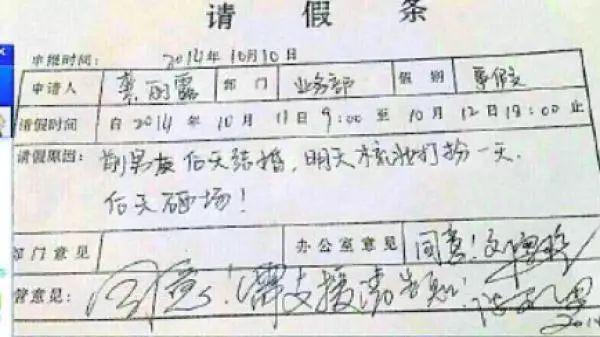 请 假 条
申报时间: 2014年10月10日
申请人 丽露 部 门 业务部 假 别 事假
请假时间 自 2014 年 10 月 11 日 9:00 至 10 月 12 日 18:00 止
请假原因: 前男友后天结婚,明天梳妆打扮一天.
后天砸场!
部门意见 办公室意见 同意!
管意见: 同意!需支援请告知!
2014